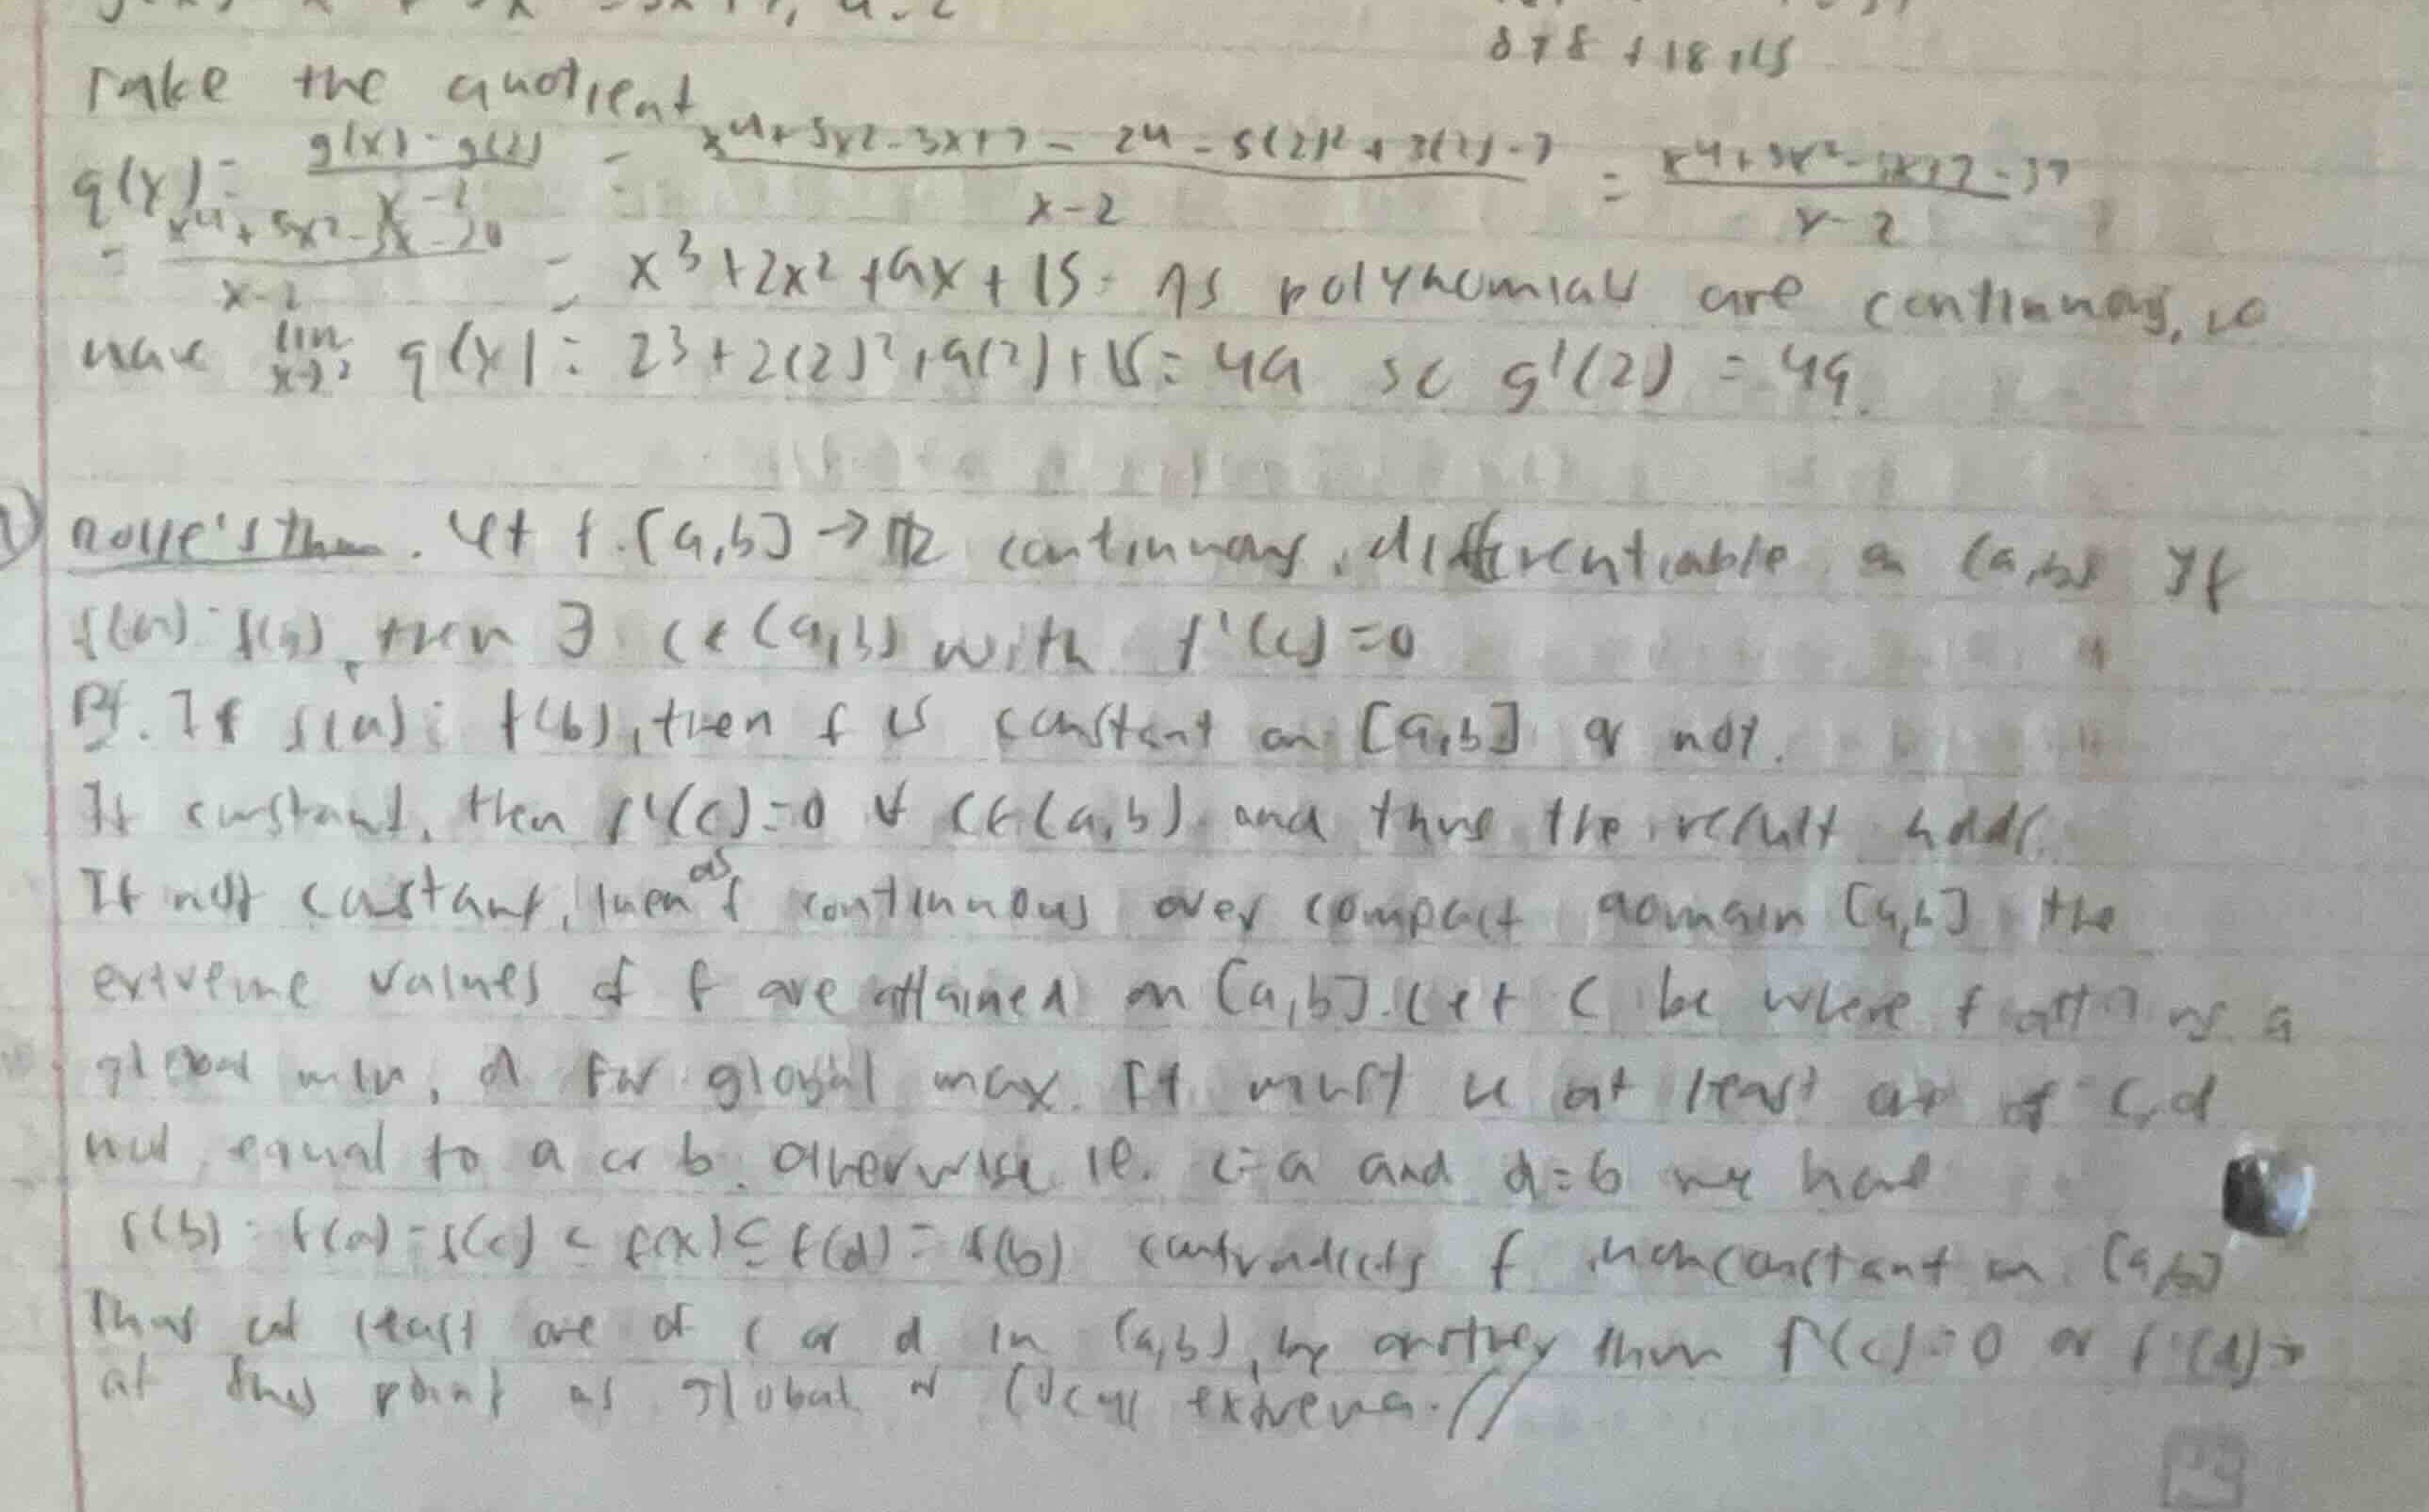 8+8+18+15
Take the quotient
q(x) = \frac{g(x) - g(2)}{x-2} = \frac{x^4+5x^2-3x+7 - 2^4 - 5(2)^2 + 3(2) - 7}{x-2} = \frac{x^4+5x^2-3x+7-37}{x-2}
= \frac{x^4+5x^2-3x-30}{x-2} = x^3+2x^2+9x+15. As polynomials are continuous, we
have \lim_{x→2} q(x) = 2^3+2(2)^2+9(2)+15 = 49 so g'(2) = 49.
Rolle's thm. Let f: [a,b] → ℝ continuous, differentiable on (a,b). If
f(a) = f(b), then ∃ c ∈ (a,b) with f'(c) = 0
Pf. If f(a) = f(b), then f is constant on [a,b] or not.
If constant, then f'(c) = 0 ∀ c ∈ (a,b) and thus the result holds.
If not constant, then as f continuous over compact domain [a,b] the
extreme values of f are attained on [a,b]. Let c be where f attains a
global min, d for global max. It must be at least one of c,d
not equal to a or b. Otherwise ie. c=a and d=b we have
f(b) = f(a) = f(c) ≤ f(x) ≤ f(d) = f(b) contradicts f nonconstant on [a,b]
Thus at least one of c or d in (a,b), by another thm f'(c)=0 or f'(d)=
at this point as global is local extrema. //